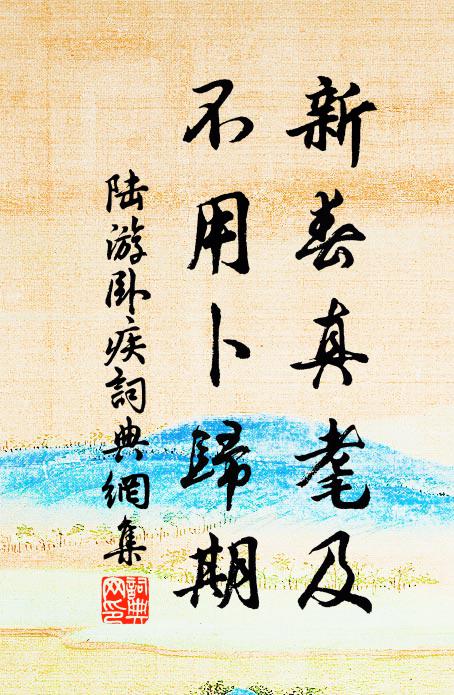 新春真耄及
不用卜歸期
陆游卧疾詞典網集
詞典网印